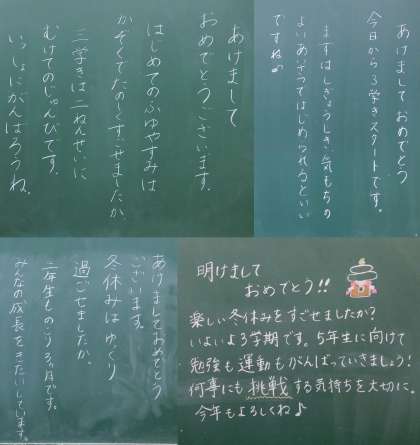 あけまして
おめでとうございます。
はじめてのふゆやすみは
かぞくでたのしくすごせましたか。
三学きは二ねんせいに
むけてのじゅんびです。
いっしょにがんばろうね。
あけましておめでとう
今日から3学きスタートです。
まずはしぎょうしき、気もちの
よいあいさつではじめられるといい
ですね♪
あけましておめでとう
ございます。
冬休みはゆっくり
過ごせましたか。
二年生ものこり3ヵ月です。
みんなの成長をきたいしています。
明けまして
おめでとう!!
楽しい冬休みをすごせましたか?
いよいよ3学期です。5年生に向けて
勉強も運動もがんばっていきましょう!
何事にも挑戦する気持ちを大切に。
今年もよろしくね♪